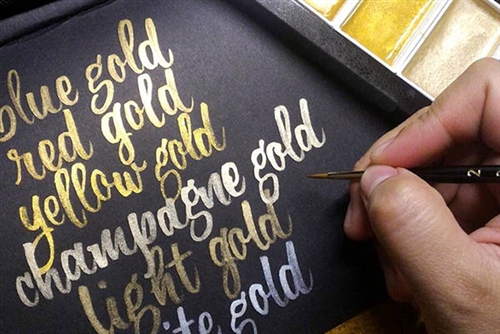 blue gold
red gold
yellow gold
champagne gold
light gold
ite gold
2